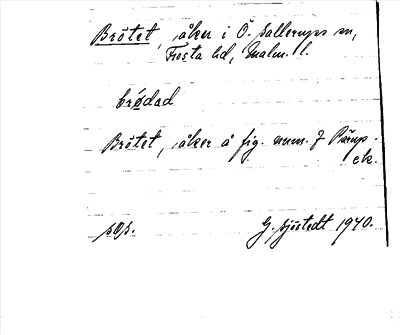 Brötet, åker i Ö. Sallerups sn,
Frosta hd, Malm. l.
brødad
Brötet, åker å fig. num. 7 Pärups
ek.
G. Sjöstedt 1940.